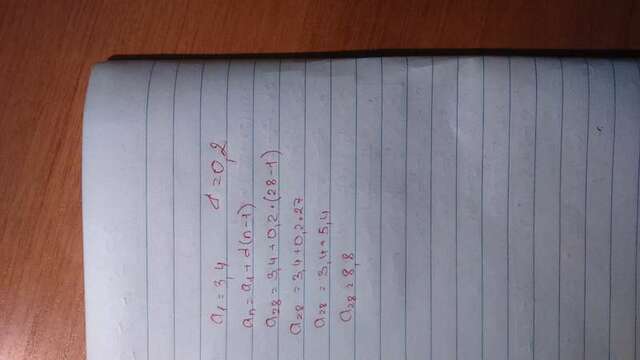 a₁ = 3,4 d = 0,2
aₙ = a₁ + d(n-1)
a₂₈ = 3,4 + 0,2 · (28-1)
a₂₈ = 3,4 + 0,2 · 27
a₂₈ = 3,4 + 5,4
a₂₈ = 8,8